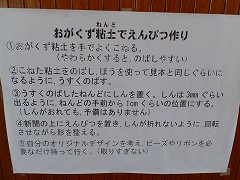 ねんど
おがくず粘土でえんぴつ作り
①おがくず粘土を手でよくこねる。
(やわらかくすると、のばしやすい)
②こねた粘土をのばし、ぼうを使って見本と同じぐらいに
なるように、うすくのばす。
③うすくのばしたねんどにしんを置く。しんは3mmぐらい
出るように、ねんどの手前から1cmぐらいの位置にする。
(しんがおれても、予備はありません)
④新聞の上にえんぴつを置き、しんが折れないように、回転
させながら形を整える。
⑤自分のオリジナルデザインを考え、ビーズやリボンを必
要なだけ持って行く。(取りすぎない)